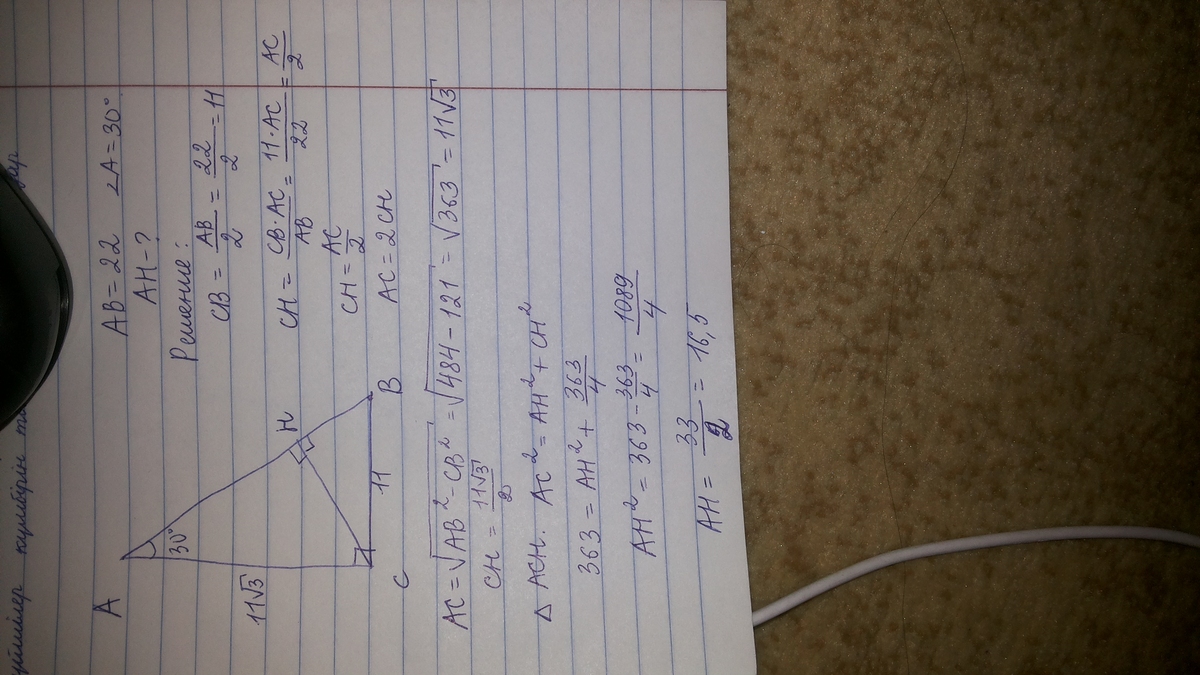 AB = 22 ∠A = 30°
AH - ?
Решение:
CB = AB/2 = 22/2 = 11
CH = CB·AC/AB = 11·AC/22 = AC/2
CH = AC/2
AC = 2CH
A
30°
11√3
H
11
C
B
AC = √AB² - CB² = √484 - 121 = √363 = 11√3
CH = 11√3/2
△ ACH. AC² = AH² + CH²
363 = AH² + 363/4
AH² = 363 - 363/4 = 1089/4
AH = 33/2 = 16,5